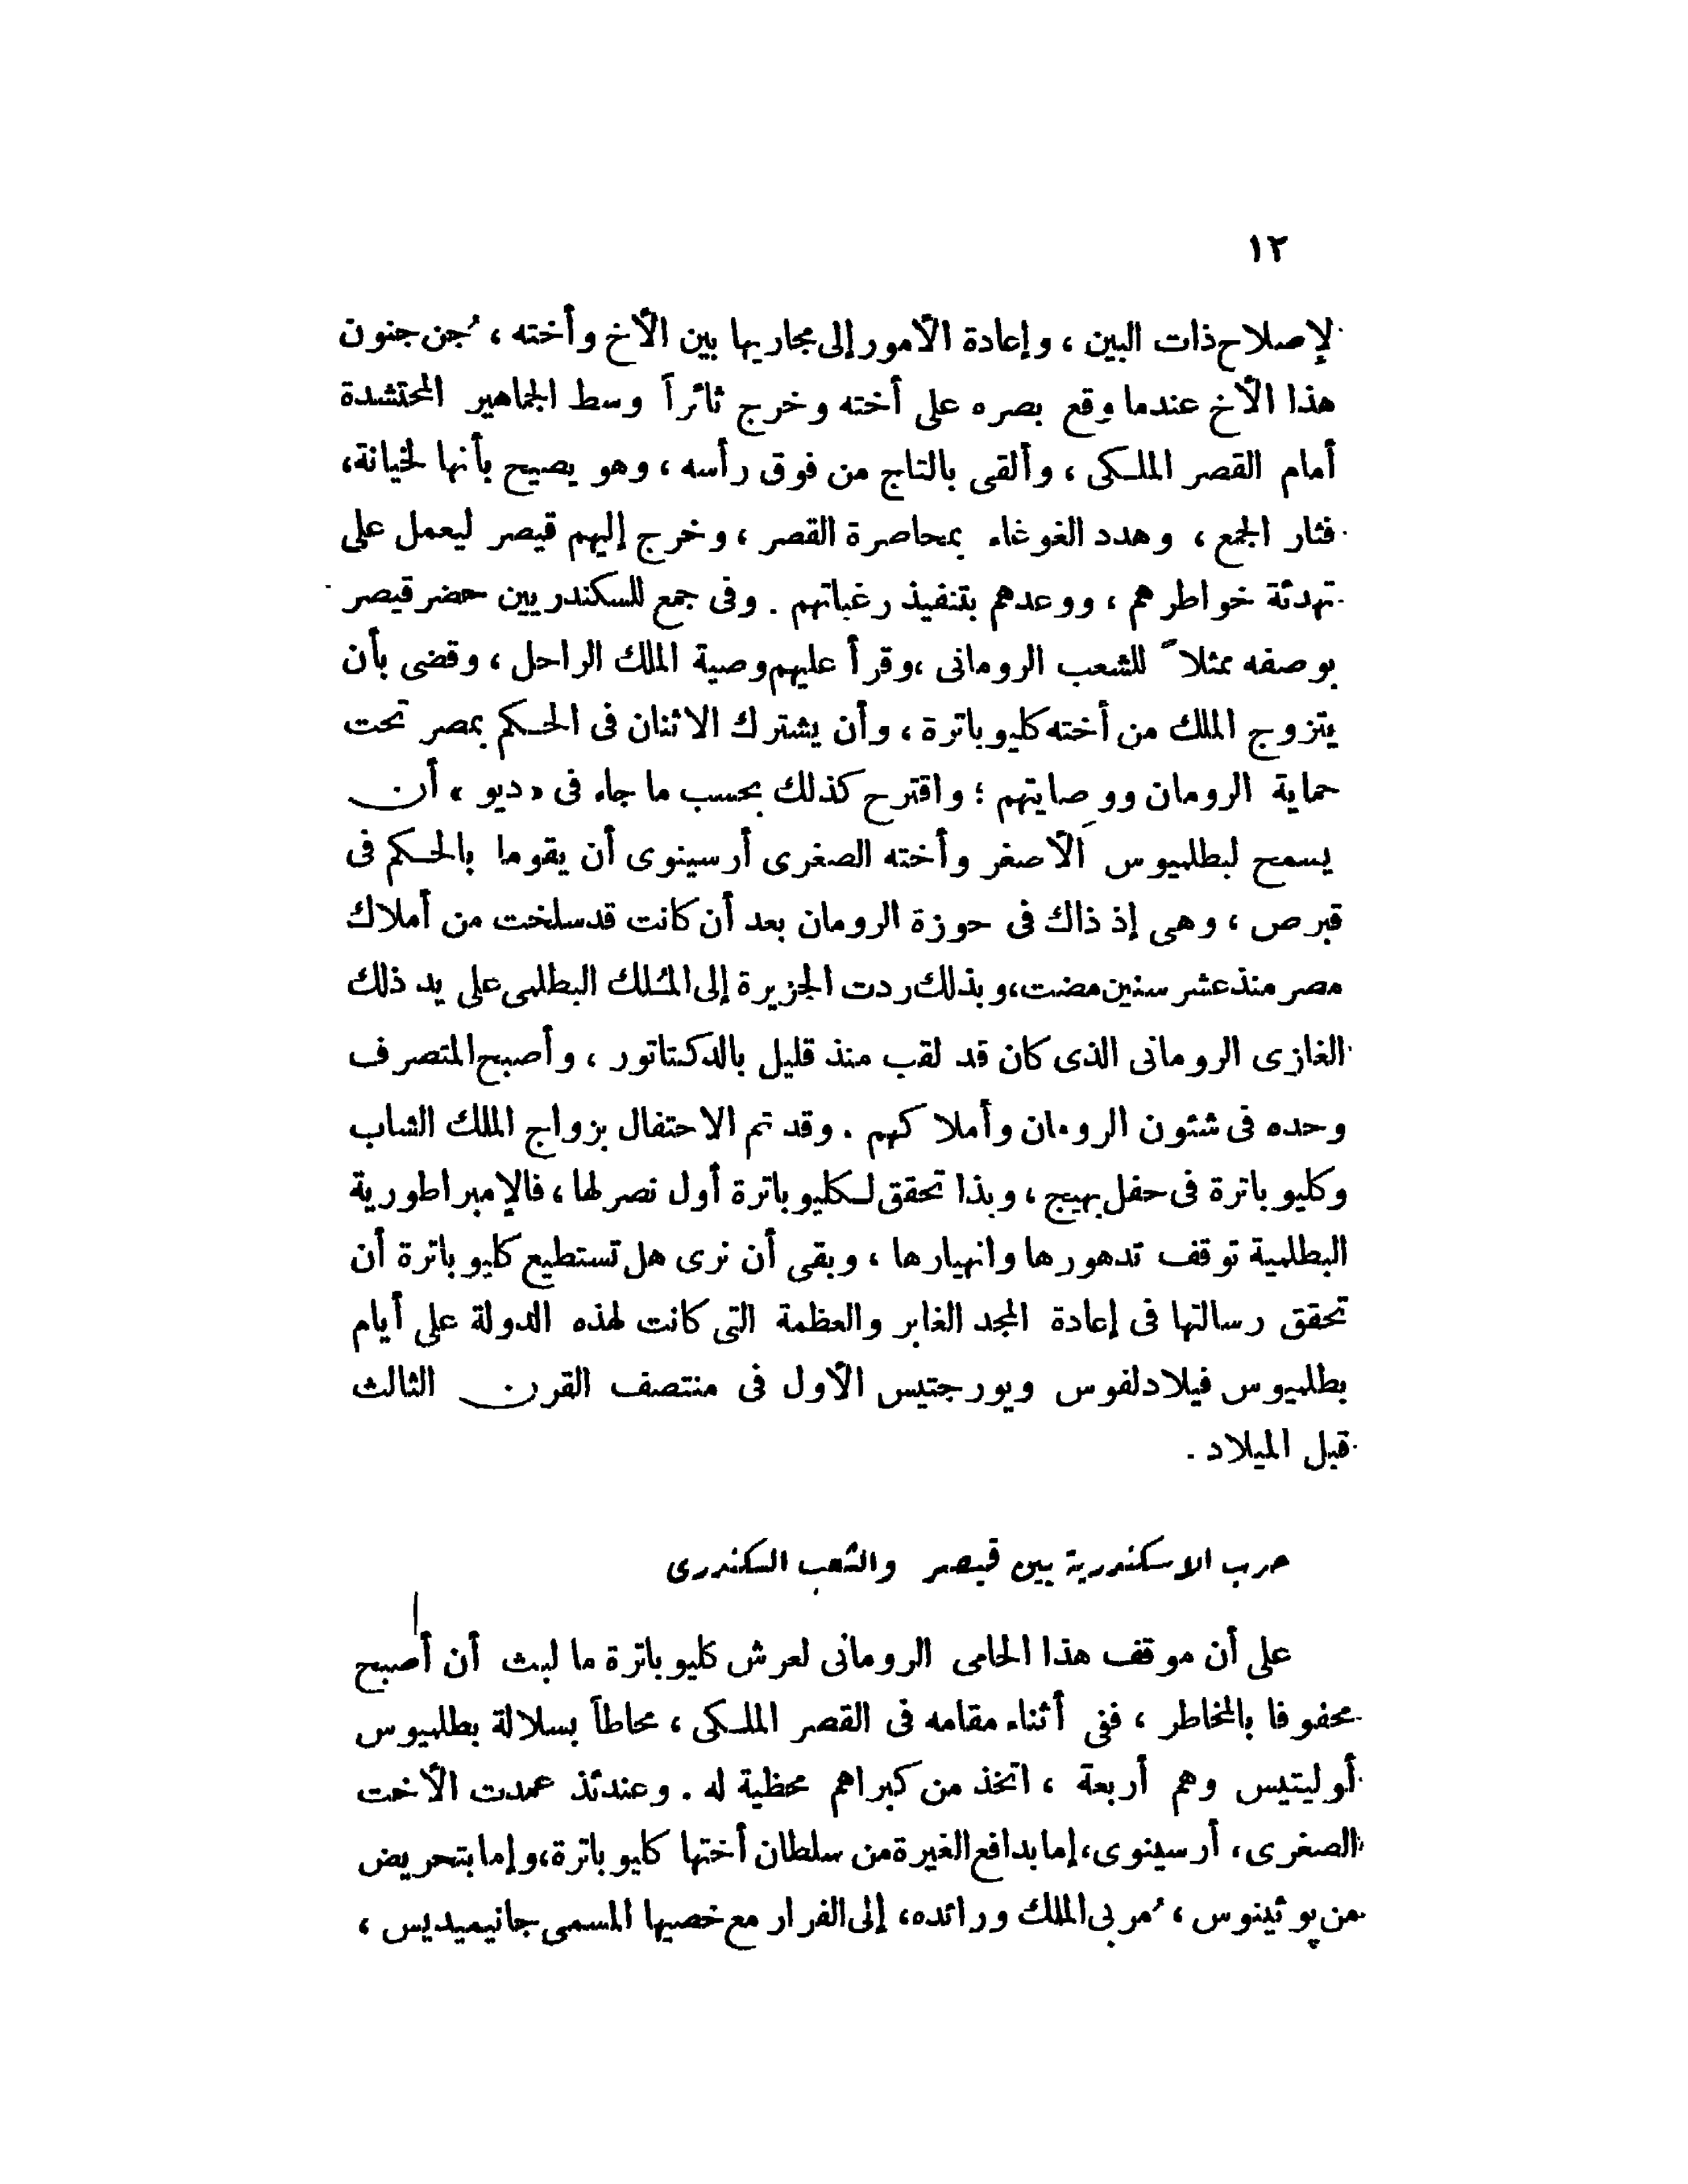 ١٢
لإصلاح ذات البين ، وإعادة الأمور إلى مجاريها بين الأخ وأخته ، ُجن جنون
هذا الأخ عندما وقع بصره على أخته وخرج ثائراً وسط الجماهير المحتشدة
أمام القصر الملكى ، وألقى بالتاج من فوق رأسه ، وهو يصيح بأنها لخيانة،
فثار الجمع ، وهدد الغوغاء بمحاصرة القصر ، وخرج إليهم قيصر ليعمل على
تهدئة خواطرهم ، ووعدهم بتنفيذ رغباتهم . وفى جمع للسكندريين حضر قيصر
بوصفه ممثلاً للشعب الرومانى ،وقرأ عليهم وصية الملك الراحل ، وقضى بأن
يتزوج الملك من أخته كليوباترة ، وأن يشترك الاثنان فى الحكم بمصر تحت
حماية الرومان ووصايتهم ؛ واقترح كذلك بحسب ما جاء فى «ديو» أن
يسمح لبطلميوس الأصغر وأخته الصغرى أرسينوى أن يقوما بالحكم فى
قبرص ، وهى إذ ذاك فى حوزة الرومان بعد أن كانت قد سلخت من أملاك
مصر منذ عشر سنين مضت،وبذلك ردت الجزيرة إلى المُلك البطلمى على يد ذلك
الغازى الرومانى الذى كان قد لقب منذ قليل بالدكتاتور ، وأصبح المتصرف
وحده فى شئون الرومان وأملاكهم . وقد تم الاحتفال بزواج الملك الشاب
وكليوباترة فى حفل بهيج ، وبذا تحقق لكليوباترة أول نصر لها ، فالإمبراطورية
البطلمية توقف تدهورها وانهيارها ، وبقى أن نرى هل تستطيع كليوباترة أن
تحقق رسالتها فى إعادة المجد الغابر والعظمة التى كانت لهذه الدولة على أيام
بطلميوس فيلادلفوس ويورجتيس الأول فى منتصف القرن الثالث
قبل الميلاد .
حرب الاسكندرية بين قيصر والشعب السكندرى
على أن موقف هذا الحامى الرومانى لعرش كليوباترة ما لبث أن أصبح
محفوفا بالمخاطر ، ففى أثناء مقامه فى القصر الملكى ، محاطاً بسلالة بطلميوس
أوليتيس وهم أربعة ، اتخذ من كبراهم محظية له . وعندئذ عمدت الأخت
الصغرى، أرسينوى،إما بدافع الغيرة من سلطان أختها كليوباترة،وإما بتحريض
من پوثينوس ، ُمربى الملك ورائده، إلى الفرار مع خصيها المسمى جانيميديس ،